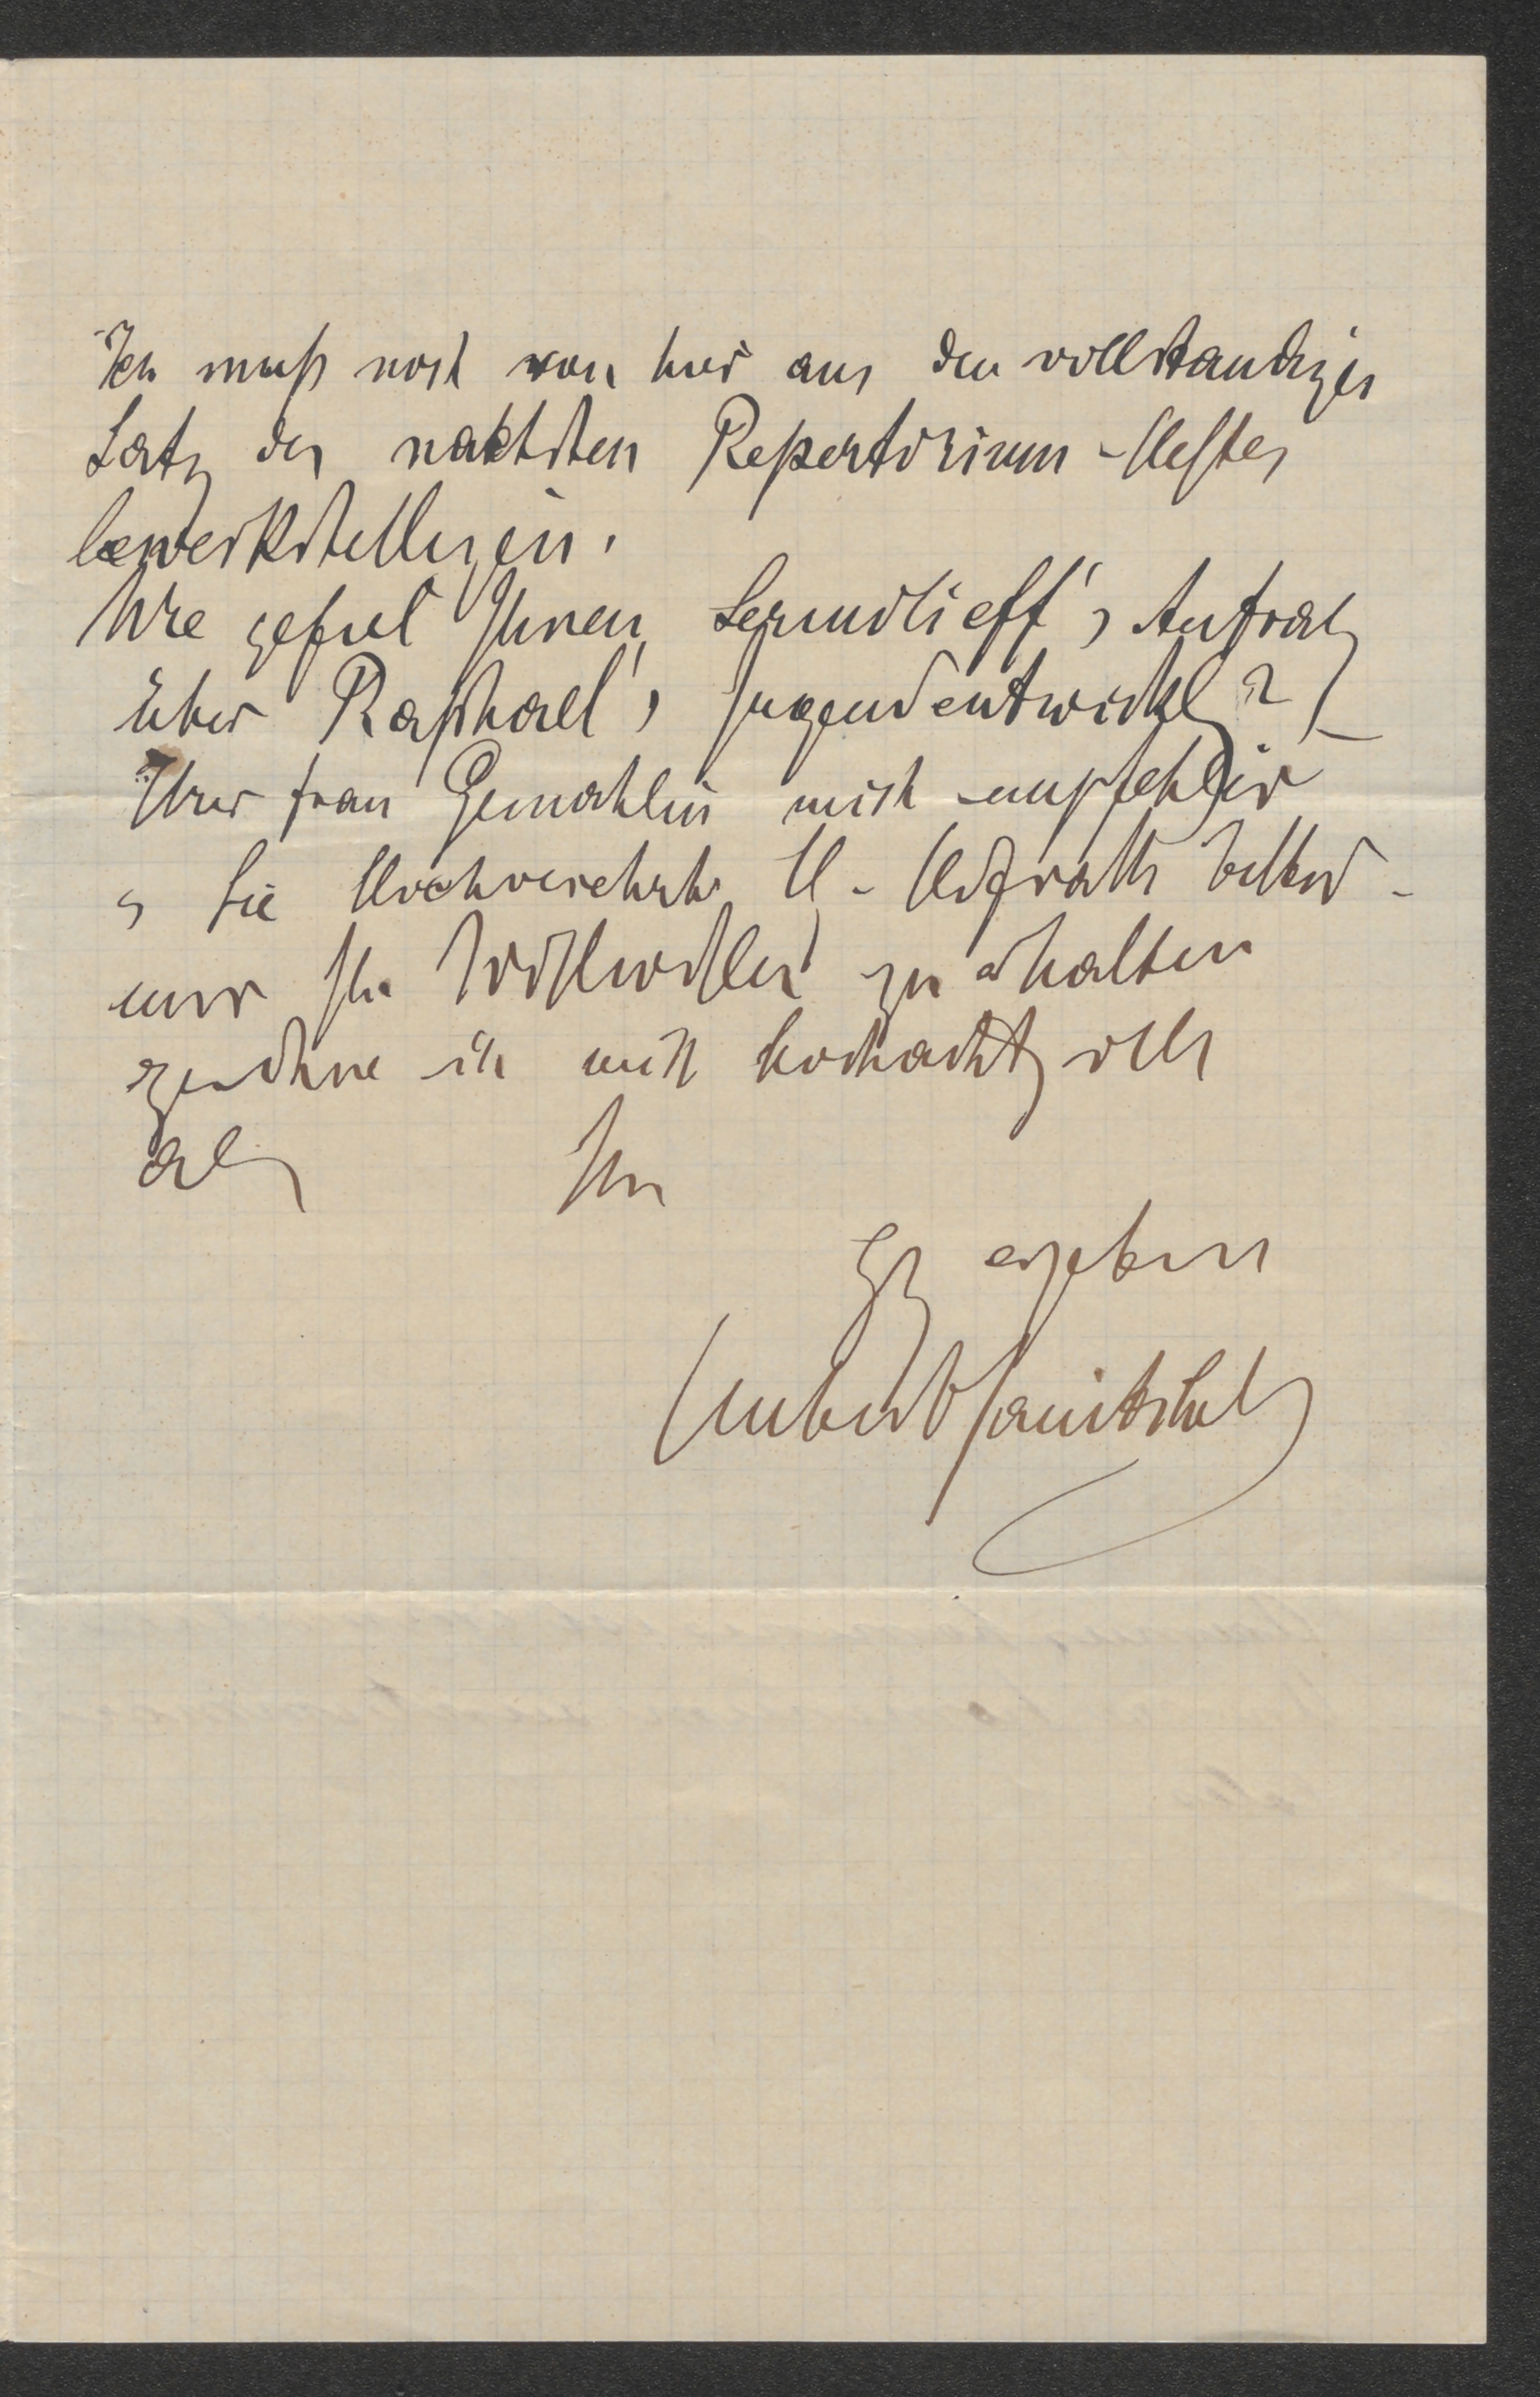 Ich muß noch von hier aus den vollständigen
Satz des nächsten Repertorium-Heftes
bewerkstelligen.
Wie gefiel Ihnen Lermolieff's Aufsatz
über Raphael's Jugendentwickl?
Ihrer Frau Gemahlin mich empfehlend
u Sie Hochverehrter H. Hofrath bittend
mir Ihr Wohlwollen zu erhalten
zeichne ich mich hochachtgsvoll
als Ihr
Gz ergebener
Hubert Janitschek